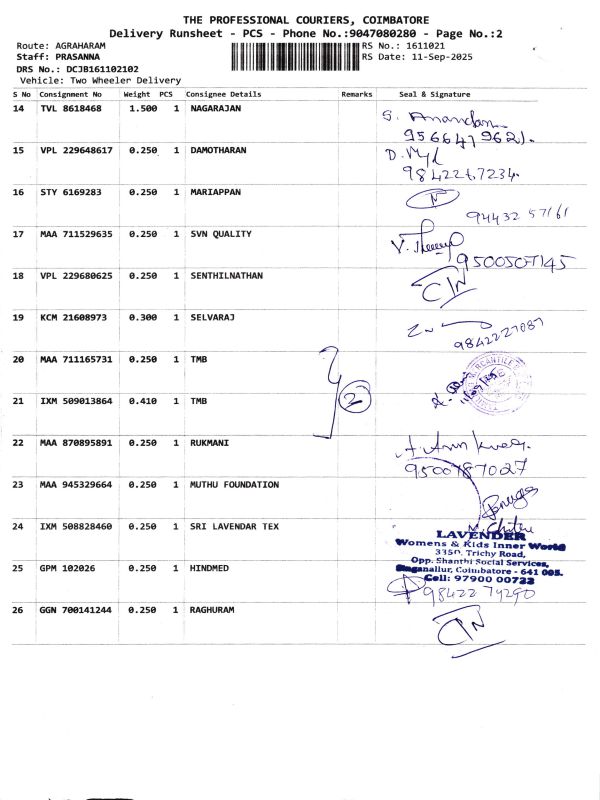 THE PROFESSIONAL COURIERS, COIMBATORE
Delivery Runsheet - PCS - Phone No.:9047080280 - Page No.:2
Route: AGRAHARAM RS No.: 1611021
Staff: PRASANNA RS Date: 11-Sep-2025
DRS No.: DCJB161102102
Vehicle: Two Wheeler Delivery
S No Consignment No Weight PCS Consignee Details Remarks Seal & Signature
14 TVL 8618468 1.500 1 NAGARAJAN S. Anandan
9566419621.
15 VPL 229648617 0.250 1 DAMOTHARAN D.
984226.7234.
16 STY 6169283 0.250 1 MARIAPPAN N
94432 57161
17 MAA 711529635 0.250 1 SVN QUALITY V.
9500507145
18 VPL 229680625 0.250 1 SENTHILNATHAN
19 KCM 21608973 0.300 1 SELVARAJ
9842227087
20 MAA 711165731 0.250 1 TMB
21 IXM 509013864 0.410 1 TMB 2
22 MAA 870895891 0.250 1 RUKMANI
9500787027
23 MAA 945329664 0.250 1 MUTHU FOUNDATION
24 IXM 508828460 0.250 1 SRI LAVENDAR TEX
LAVENDER
Womens & Kids Inner World
335D, Trichy Road,
Opp. Shanthi Social Services,
Singanallur, Coimbatore - 641 005.
Cell: 97900 00722
25 GPM 102026 0.250 1 HINDMED
98422 74290
26 GGN 700141244 0.250 1 RAGHURAM